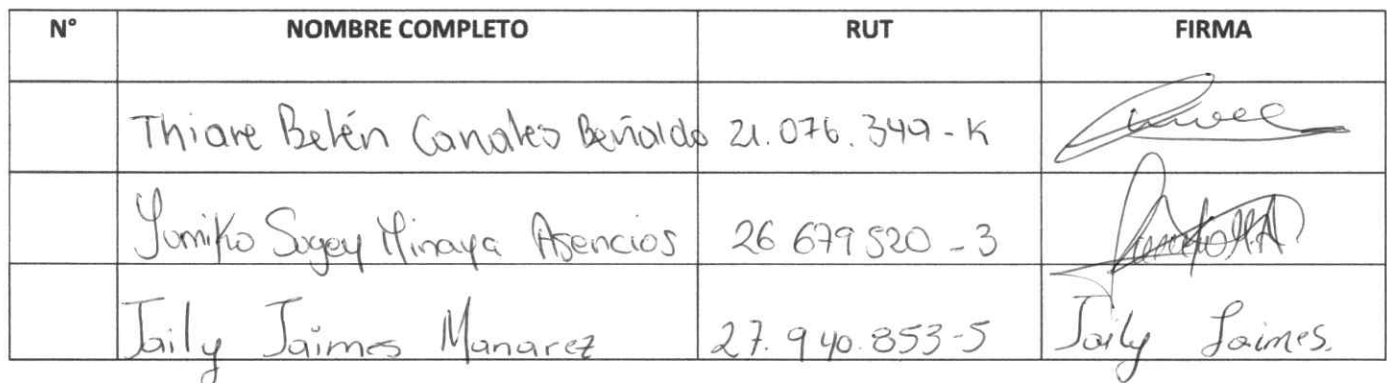 N° NOMBRE COMPLETO RUT FIRMA
Thiare Belén Canales Beñaldo 21.076.349-K
Yumiko Sugey Minaya Asencios 26 679 520-3
Jaily Jaimes Manarez 27.940.853-5 Jaily Jaimes.